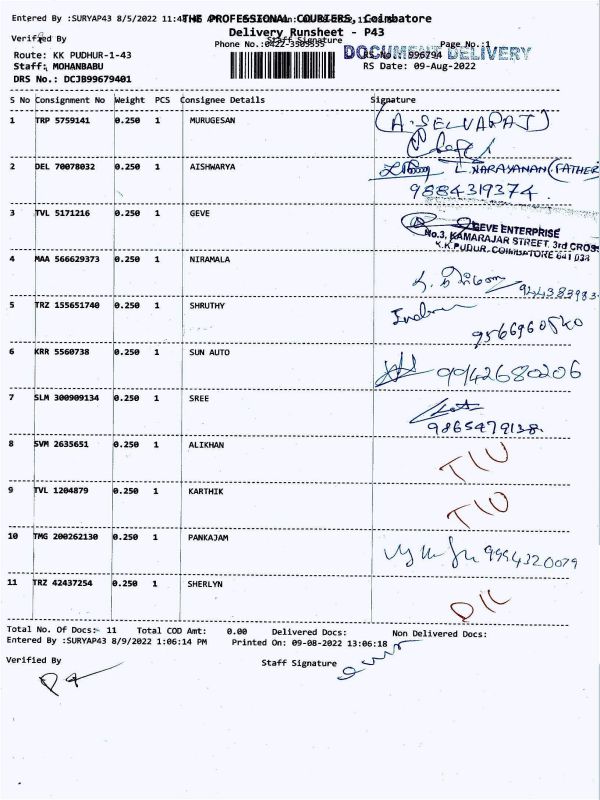 Entered By :SURYAP43 8/5/2022
THE PROFESSIONAL COURIERS, Coimbatore
Delivery Runsheet - P43
Verified By
Staff Signature
Phone No.:0422-3505555
Page No.:1
DOCUMENT DELIVERY
Route: KK PUDHUR-1-43
RS No.: 996794
Staff: MOHANBABU
RS Date: 09-Aug-2022
DRS No.: DCJB99679401
S No Consignment No Weight PCS Consignee Details Signature
1 TRP 5759141 0.250 1 MURUGESAN (A.SELVARAJ)
2 DEL 70078032 0.250 1 AISHWARYA L.NARAYANAN (FATHER)
9884319374
3 TVL 5171216 0.250 1 GEVE
GEVE ENTERPRISE
No.3, KAMARAJAR STREET, 3rd CROSS
K.K.PUDUR, COIMBATORE 641 038
4 MAA 566629373 0.250 1 NIRAMALA
5 TRZ 155651740 0.250 1 SHRUTHY
6 KRR 5560738 0.250 1 SUN AUTO 9942680206
7 SLM 300909134 0.250 1 SREE
9865479138
8 SVM 2635651 0.250 1 ALIKHAN
9 TVL 1204879 0.250 1 KARTHIK
10 TMG 200262130 0.250 1 PANKAJAM 9994320079
11 TRZ 42437254 0.250 1 SHERLYN
Total No. Of Docs:- 11 Total COD Amt: 0.00 Delivered Docs: Non Delivered Docs:
Entered By :SURYAP43 8/9/2022 1:06:14 PM Printed On: 09-08-2022 13:06:18
Verified By Staff Signature